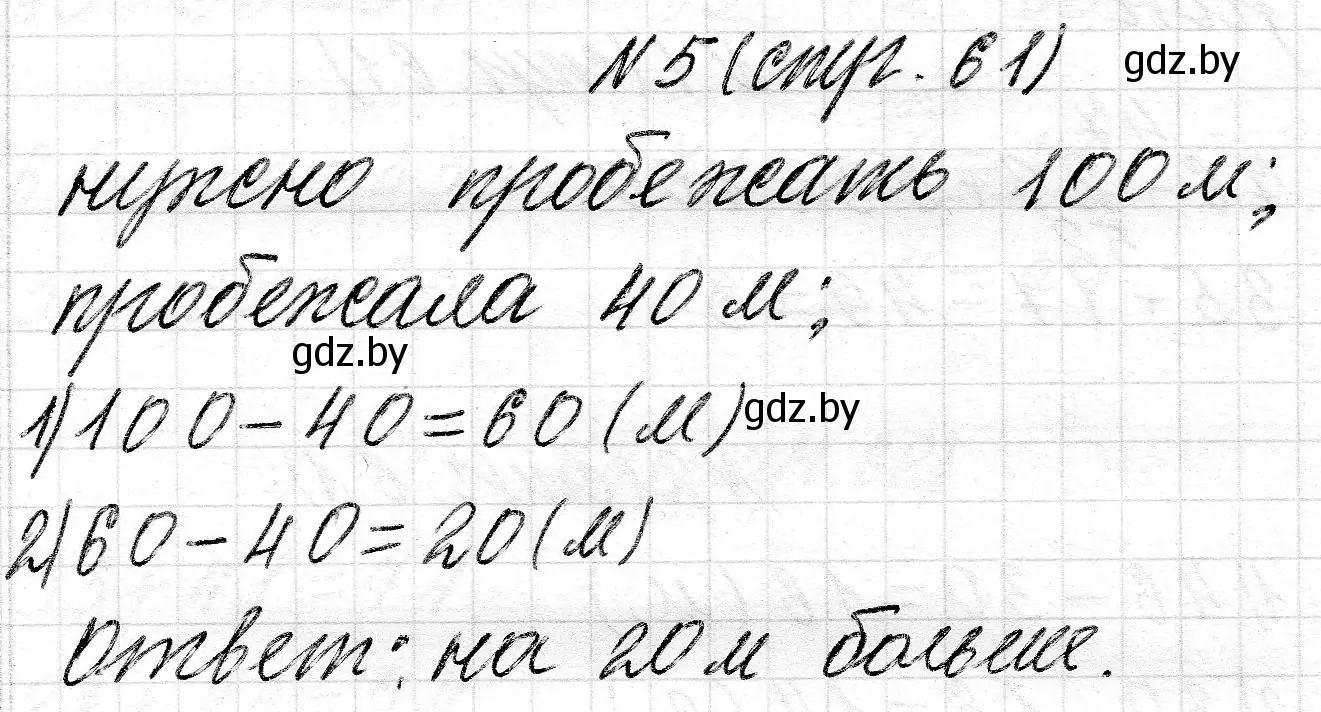 N 5 (стр. 61) gdz.by
нужно пробежать 100 м;
пробежала 40 м;
gdz.by
1) 100 - 40 = 60 (м) gdz.by
2) 60 - 40 = 20 (м)
Ответ: на 20 м больше.